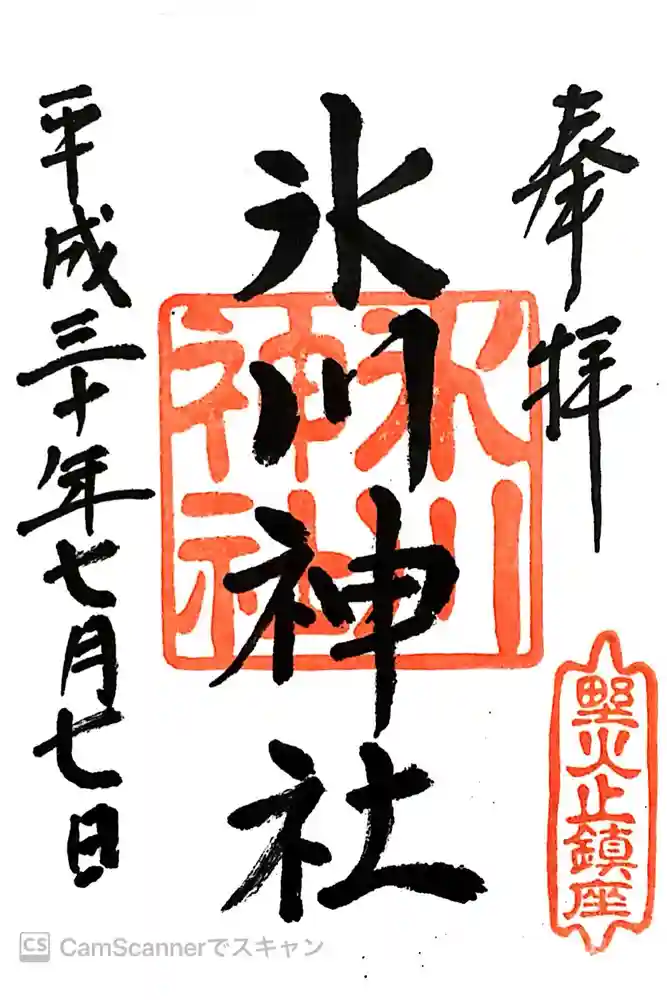 奉拝
氷川神社
氷川神社
野火止鎮座
平成三十年七月七日
CS CamScannerでスキャン